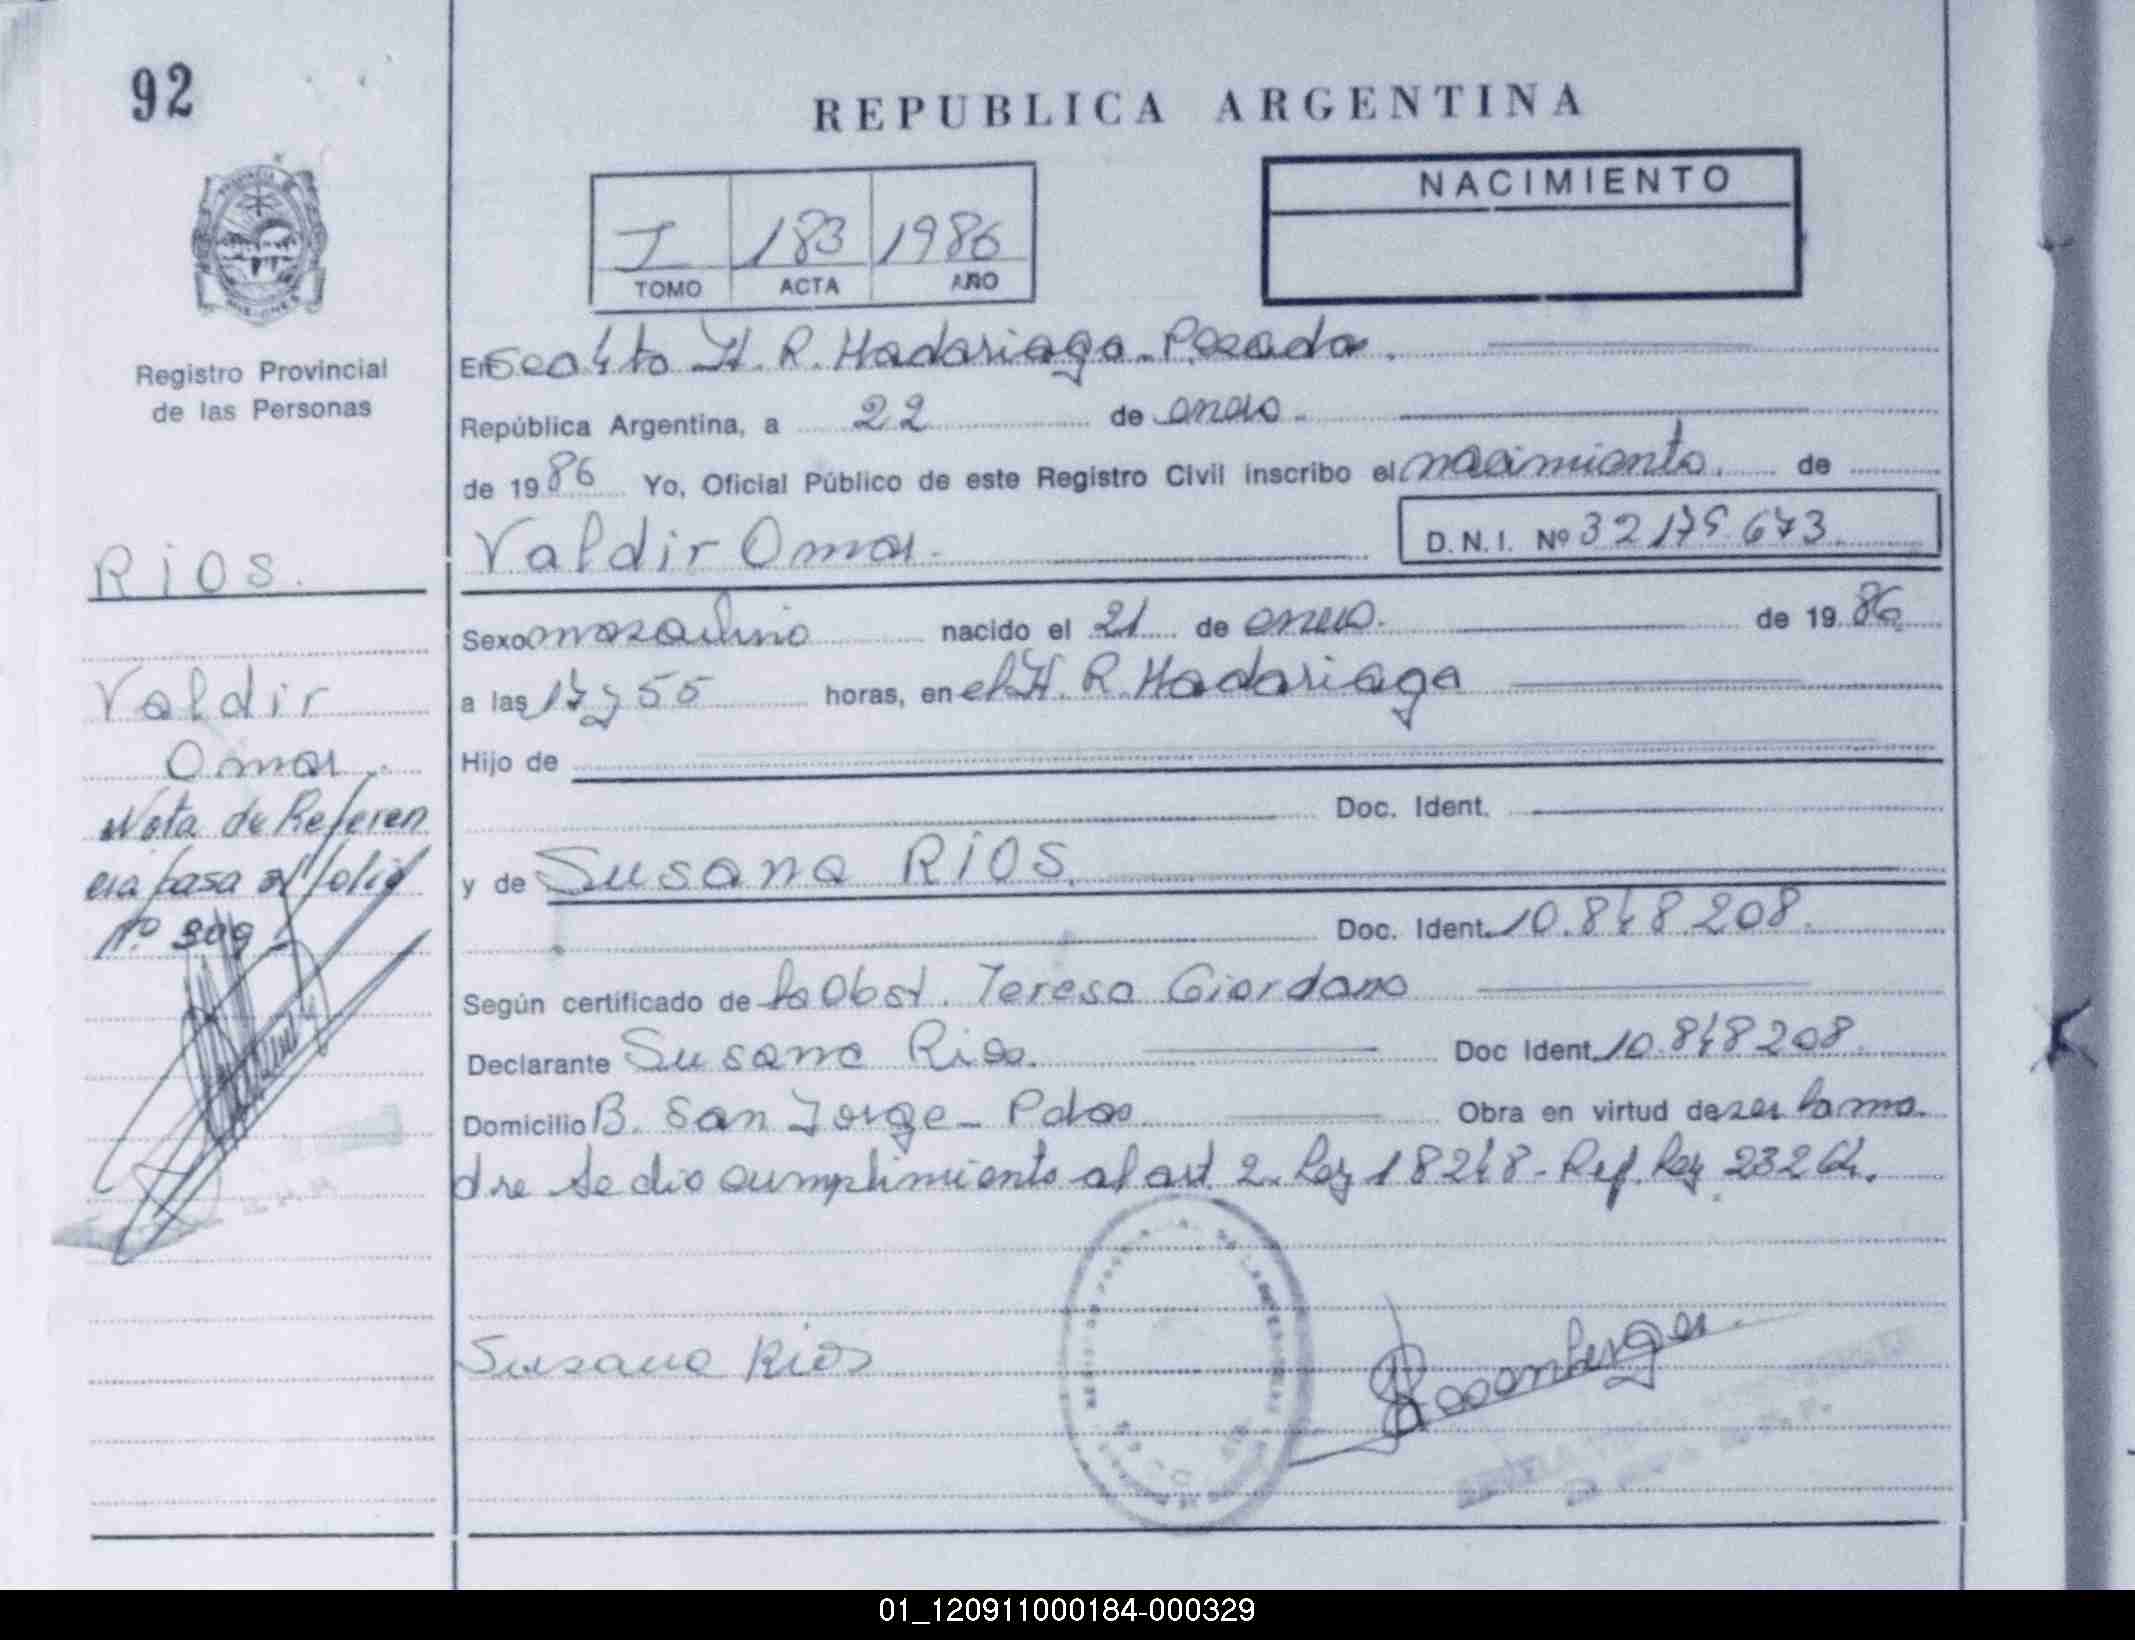 92
REPUBLICA ARGENTINA
I 183 1986
TOMO ACTA AÑO
NACIMIENTO
Registro Provincial
de las Personas
En H. R. Madariaga - Posadas.
República Argentina, a 22 de enero.
de 1986 Yo, Oficial Público de este Registro Civil inscribo el nacimiento. de
Valdir Omar. D.N.I. Nº 32175.673
Sexo masculino nacido el 21 de enero. de 1986
a las 17 y 55 horas, en el H. R. Madariaga
Hijo de
Doc. Ident.
y de Susana RIOS.
Doc. Ident. 10.848.208.
Según certificado de la Obst. Teresa Giordano
Declarante Susana Rios. Doc Ident. 10.848208
Domicilio B. San Jorge - Pdas Obra en virtud de ser la ma
dre Se dio cumplimiento al art. 2. Ley 18248 - Ref. Ley 23264.
Susana Rios
RIOS.
Valdir
Omar.
Nota de Referen
cia pasa al folio
Nº 309
01_120911000184-000329